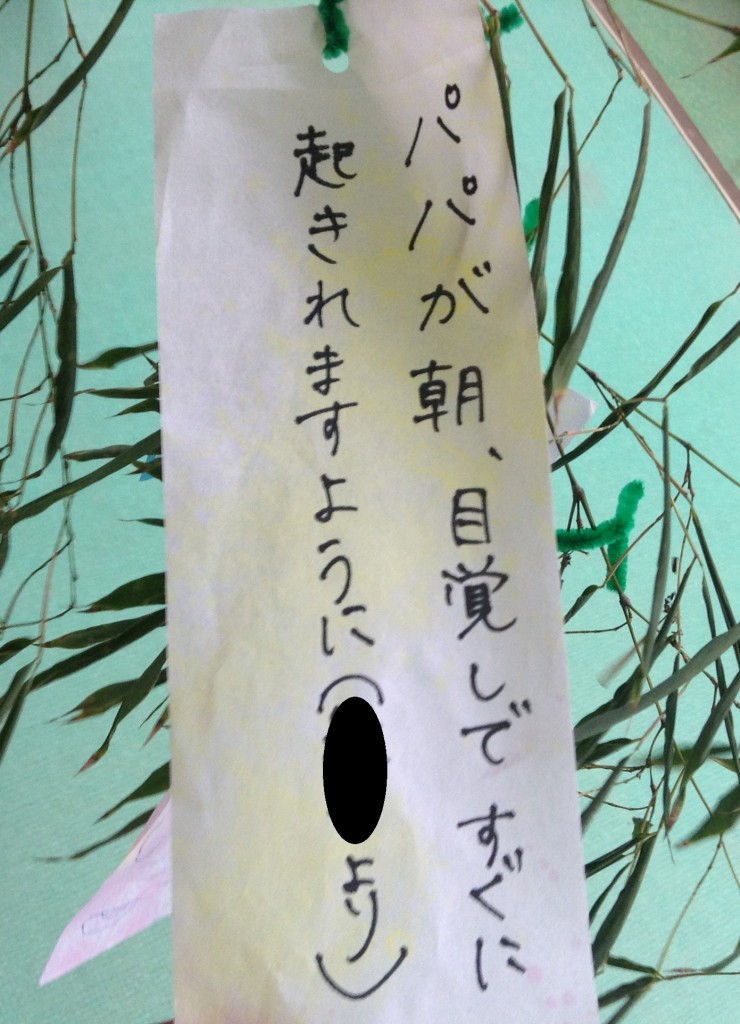 パパが朝、目覚しですぐに
起きれますように（ より）